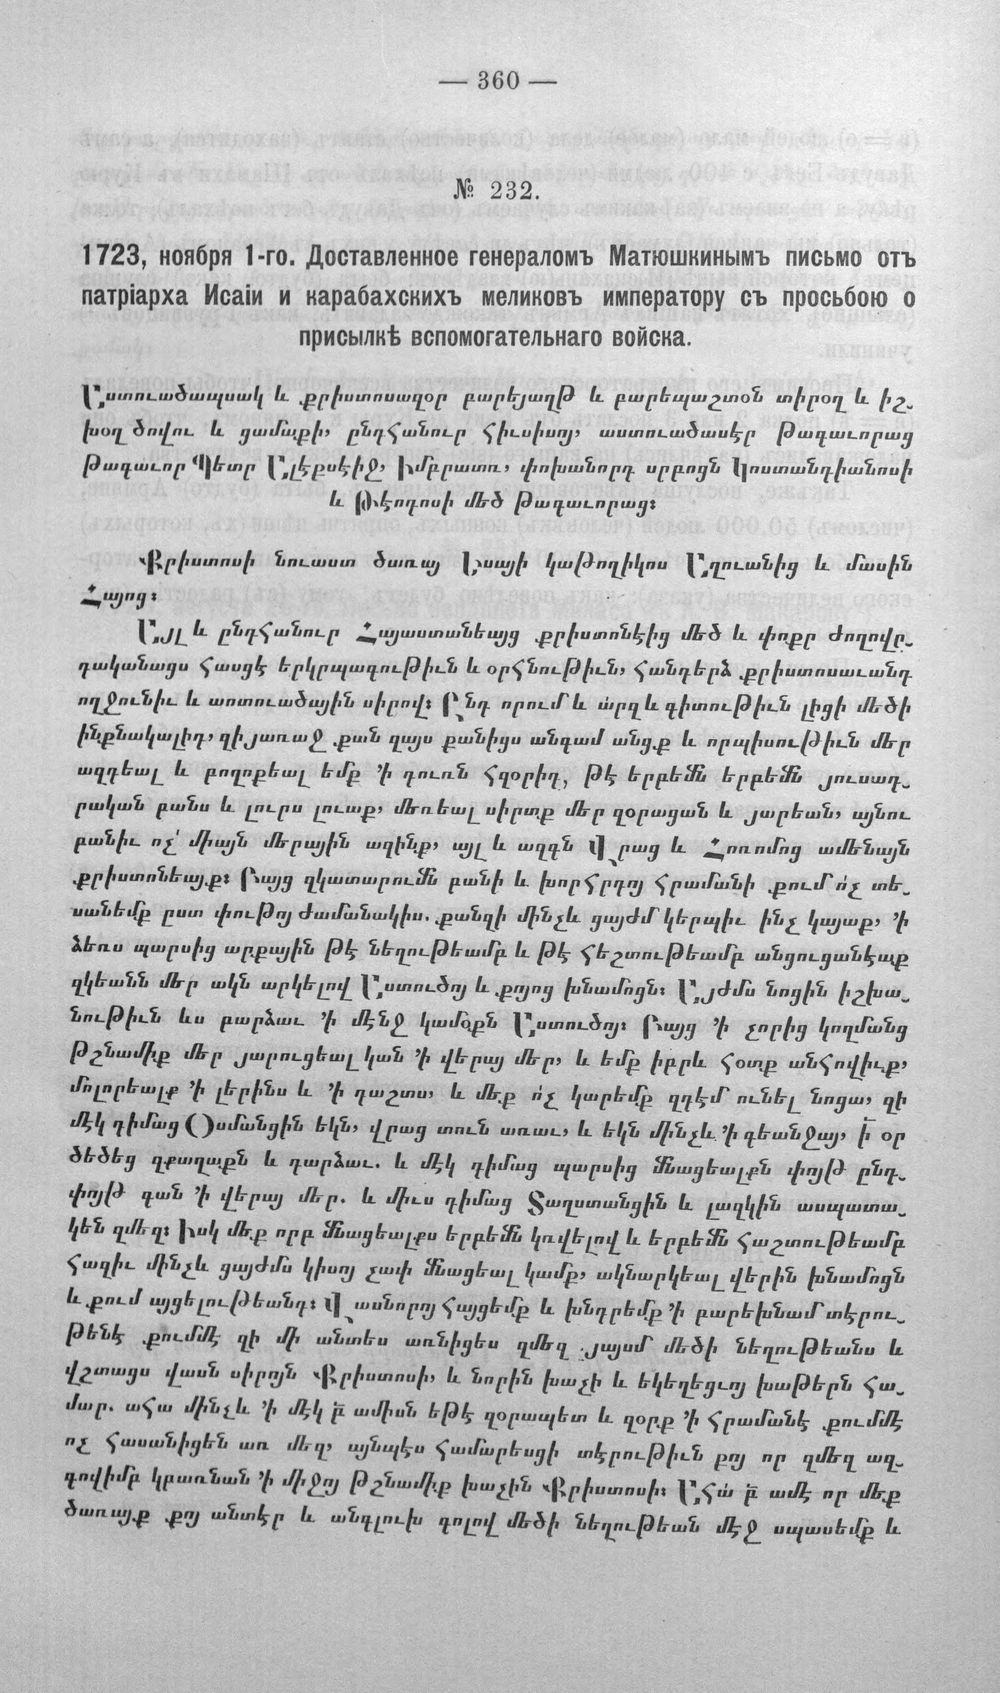 — 360 —
№ 232.
1723, ноября 1-го. Доставленное генераломъ Матюшкинымъ письмо отъ
патріарха Исаіи и карабахскихъ меликовъ императору съ просьбою о
присылкѣ вспомогательнаго войска.
Աստուածապսակ և քրիստոսազօր բարեյաղթ և բարեպաշտօն տիրօղ և իշ֊
խօղ ծովու և ցամաքի, ընդհանուր հիւսիսոյ, աստուածասէր թագաւորաց
թագաւոր Պետր Ալէքսէիջ, իմբրատռ, փոխանորդ սրբոցն Կոստանդիանոսի
և Թէոդոսի մեծ թագաւորաց։
Քրիստոսի նուաստ ծառայ Եսայի կաթողիկոս Աղուանից և մասին
Հայոց։
Այլ և ընդհանուր Հայաստանեայց քրիստոնէից մեծ և փոքր ժողովը֊
դականացս հասցէ երկրպագութիւն և օրհնութիւն, հանդերձ քրիստոսաւանդ
ողջունիւ և աոտուածային սիրով։ Ընդ որում և արզ և գիտութիւն լիցի մեծի
ինքնակալիդ, զի յառաջ քան զայս քանիցս անգամ անցք և որպիսութիւն մեր
ազդեալ և բողոքեալ եմք ՚ի դուռն հզօրիդ, թէ երբեմն երբեմն յուսադ֊
րական բանս և լուրս լուաք, մեռեալ սիրտք մեր զօրացան և յարեան, այնու
բանիւ ոչ՛ միայն մերային ազինք, այլ և ազգն Վրաց և Հոռոմոց ամենայն
քրիստոնեայք։ Բայց զկատարումն բանի և խորհրդոյ հրամանի քում ո՛չ տե֊
սանեմք ըստ փութոյ ժամանակիս. քանզի մինչև ցայժմ կերպիւ ինչ կայաք, ՚ի
ձեռս պարսից արքային թէ նեղութեամբ և թէ հեշտութեամբ անցուցանէաք
զկեանն մեր ակն արկելով Աստուծոյ և քոյոց խնամոցն։ Այժմս նոցին իշխա֊
նութիւն ևս բարձաւ ՚ի մէնջ կամօքն Աստուծոյ։ Բայց ՚ի չորից կողմանց
թշնամիք մեր յարուցեալ կան ՚ի վերայ մեր, և եմք իբրև հօտք անհովիւք,
մոլորեալք ՚ի լերինս և ՚ի դաշտս, և մեք ո՛չ կարեմք զդէմ ունել նոցա, զի
մէկ դիմաց Օսմանցին եկն, վրաց տուն առաւ, և եկն մինչև ՚ի գեանջայ, ի օր
ծեծեց զքաղաքն և դարձաւ. և մէկ դիմաց պարսից մնացեալքն փոյթ ընդ֊
փոյթ գան ՚ի վերայ մեր. և միւս դիմաց Տաղստանցին և լազկին ասպատա֊
կեն զմեզ։ Իսկ մեք որբ մնացեալքս երբեմն կռվելով և երբեմն հաշտութեամբ
հազիւ մինչև ցայժմս կիսոյ չափ մնացեալ կամք, ակնարկեալ վերին խնամոցն
և քում այցելութեանդ։ Վասնորոյ հայցեմք և խնդրեմք ՚ի բարեխնամ տէրու֊
թենէ քումմէ զի մի անտես առնիցես զմեզ յայսմ մեծի նեղութեանս և
վշտացս վասն սիրոյն Քրիստոսի, և նորին խաչի և եկեղեցւոյ խաթերն հա֊
մար. ահա մինչև ՚ի մէկ բ ամիսն եթէ զօրապետ և զօրք ՚ի հրամանէ քումմէ
ոչ հասանիցեն առ մեզ, այնպէս համարեսցի տէրութիւն քոյ որ զմեզ ազ֊
գովիմբ կբառնան ՚ի միջոյ թշնամիք խաչին Քրիստոսի։ Ահա բ ամէ որ մեք
ծառայք քոյ անտէր և անգլուխ գոլով մեծի նեղութեան մէջ սպասեմք և